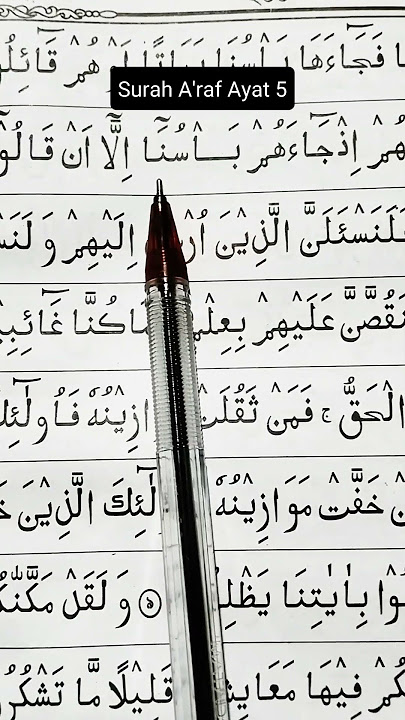 Surah A'raf Ayat 5
فَجَآءَهَا بَاْسُنَا بَيَاتًا اَوْ هُمْ قَآئِلُو
هُمْ اِذْ جَآءَهُمْ بَـاْسُنَآ اِلَّآ اَنْ قَالُو
فَلَنَسْئَلَنَّ الَّذِيْنَ اُرْ اِلَيْهِمْ وَ لَنَسْ
نَقُصَّنَّ عَلَيْهِمْ بِعِلْمٍ مَا كُنَّا غَآئِبِيْ
الْحَقُّ ۚ فَمَنْ ثَقُلَتْ ازِيْنُهٗ فَاُولٰٓئِكَ
خَفَّتْ مَوَازِيْنُهٗ لٰٓئِكَ الَّذِيْنَ خَ
وْا بِاٰيٰتِنَا يَظْلِ ۝۹ وَ لَقَدْ مَكَّنّٰكُ
كُمْ فِيْهَا مَعَايِشَ قَلِيْلًا مَّا تَشْكُرُ